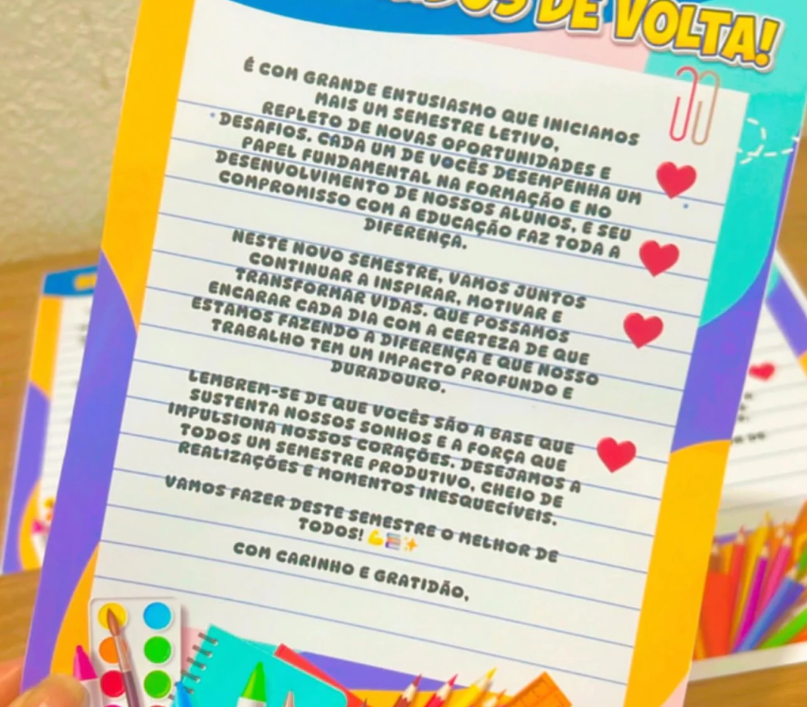 DE VOLTA!
É COM GRANDE ENTUSIASMO QUE INICIAMOS
MAIS UM SEMESTRE LETIVO,
REPLETO DE NOVAS OPORTUNIDADES E
DESAFIOS. CADA UM DE VOCÊS DESEMPENHA UM
PAPEL FUNDAMENTAL NA FORMAÇÃO E NO
DESENVOLVIMENTO DE NOSSOS ALUNOS, E SEU
COMPROMISSO COM A EDUCAÇÃO FAZ TODA A
DIFERENÇA.
NESTE NOVO SEMESTRE, VAMOS JUNTOS
CONTINUAR A INSPIRAR, MOTIVAR E
TRANSFORMAR VIDAS. QUE POSSAMOS
ENCARAR CADA DIA COM A CERTEZA DE QUE
ESTAMOS FAZENDO A DIFERENÇA E QUE NOSSO
TRABALHO TEM UM IMPACTO PROFUNDO E
DURADOURO.
LEMBREM-SE DE QUE VOCÊS SÃO A BASE QUE
SUSTENTA NOSSOS SONHOS E A FORÇA QUE
IMPULSIONA NOSSOS CORAÇÕES. DESEJAMOS A
TODOS UM SEMESTRE PRODUTIVO, CHEIO DE
REALIZAÇÕES E MOMENTOS INESQUECÍVEIS.
VAMOS FAZER DESTE SEMESTRE O MELHOR DE
TODOS! 💪📚✨
COM CARINHO E GRATIDÃO,